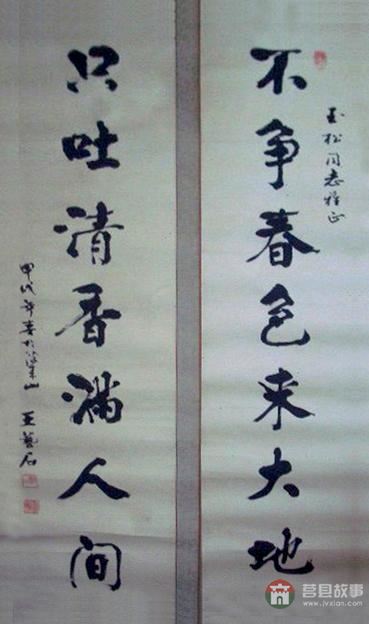 不争春色来大地
玉松同志雅正
只吐清香满人间
甲戌年春于梁山 王艺石
莒县故事
www.jvxian.com